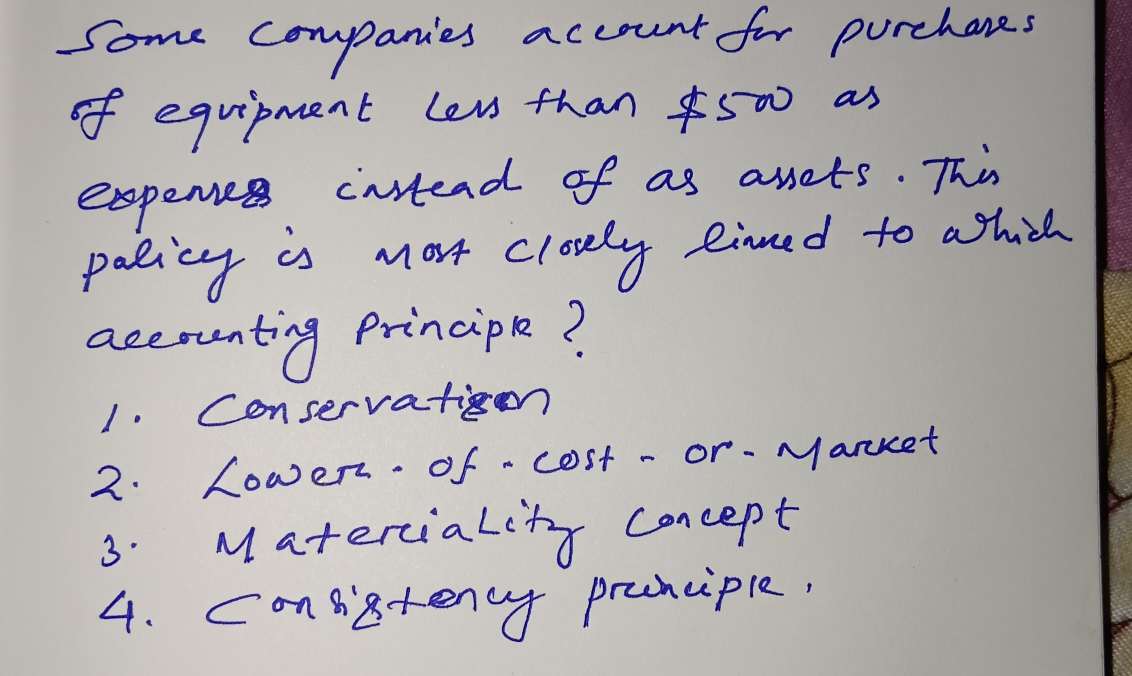 Some companies account for purchases
of equipment less than $500 as
expenses instead of as assets. This
policy is most closely linked to which
accounting principle?
1. Conservatism
2. Lower-of-cost-or-Market
3. Materiality concept
4. Consistency principle.